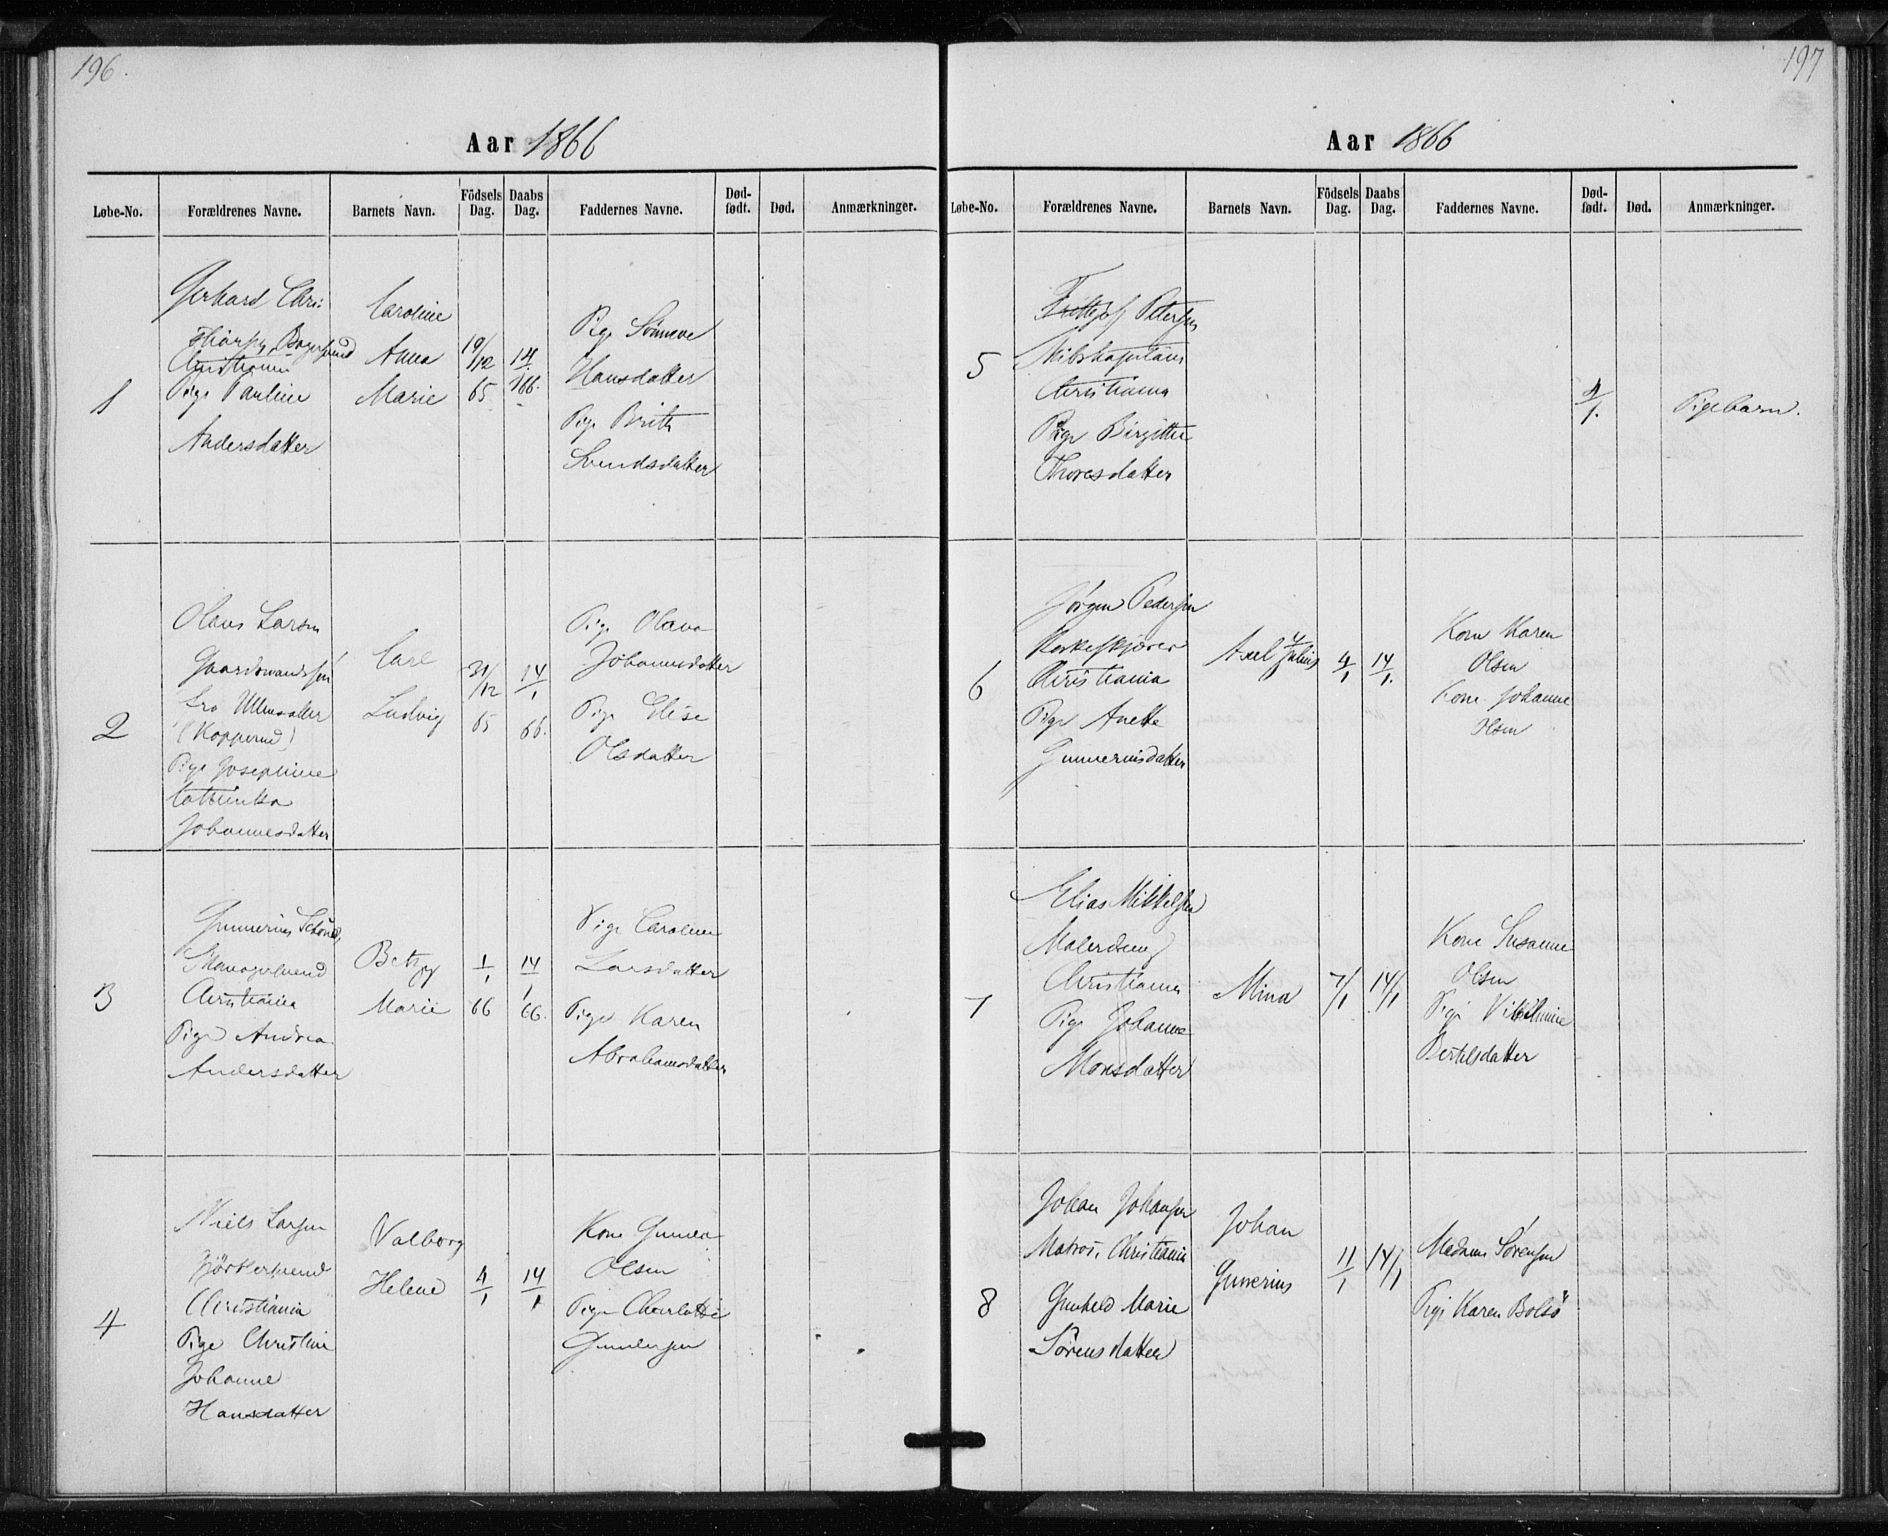 196.
Aar 1866
Løbe-No. Forældrenes Navne. Barnets Navn. Födsels Dag. Daabs Dag. Faddernes Navne. Død-født. Død. Anmærkninger.
1
Gerhard Chri-
Christiania
Pige Pauline
Andersdatter
Caroline
Anna
Marie
19/12
65
14/1
66.
Pige Sønneve
Hansdatter
Pige Brith
Svendsdatter
2
Olaus Larsen
Gaardmandssøn
fra Ullensaker
(Kopperud)
Pige Josephine
Cathinka
Johannesdatter
Carl
Ludvig
31/12
65
14/1
66.
Pige Olava
Johannesdatter
Pige Elise
Olsdatter
3
Gunnerius
Christiania
Pige Andrea
Andersdatter
Betzy
Marie
1/1
66
14/1
66.
Pige Caroline
Larsdatter
Pige Karen
Abrahamsdatter
4
Niels Larsen
Kjörkersvend
Christiania
Pige Christine
Johanne
Hansdatter
Valborg
Helene
4/1
14/1
Kone Gunda
Olsen
Pige Charlotte
Gundersen
197
Aar 1866
Løbe-No. Forældrenes Navne. Barnets Navn. Födsels Dag. Daabs Dag. Faddernes Navne. Død-født. Død. Anmærkninger.
5
Frithjof Petersen
Skibskapitain
Christiania
Pige Birgitte
Thoresdatter
4/1.
Pigebarn.
6
Jörgen Pedersen
Christiania
Pige Anette
Gunneriusdatter
Axel Julius
4/1
14/1.
Kone Karen
Olsen
Kone Johanne
Olsen
7
Elias Mikkelsen
Malersvend
Christiania
Pige Johanne
Monsdatter
Mina
7/1
14/1
Kone Susanne
Olsen
Pige Vilhelmine
Bertelsdatter
8
Johan Johansen
Matros, Christiania
Gunhild Marie
Sörensdatter
Johan
Gunnerius
11/1
14/1
Madame Sörensen
Pige Karen Bolsö